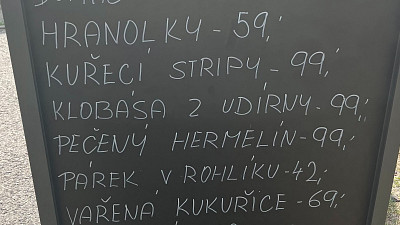 HRANOLKY - 59,-
KUŘECÍ STRIPY - 99,-
KLOBÁSA Z UDÍRNY - 99,-
PEČENÝ HERMELÍN - 99,-
PÁREK V ROHLÍKU - 42,-
VAŘENÁ KUKUŘICE - 69,-